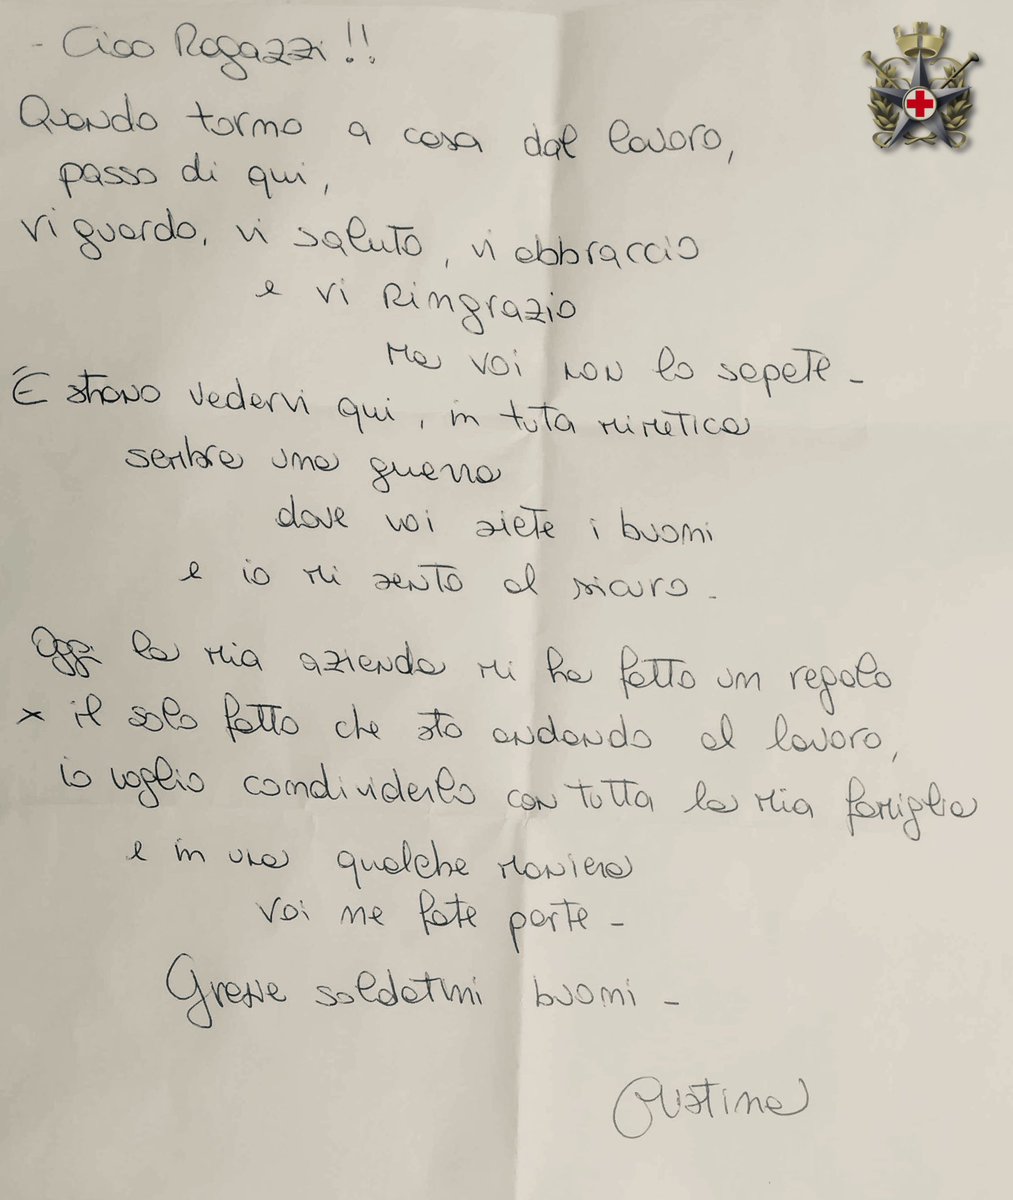 - Ciao Ragazzi!!
Quando torno a casa dal lavoro,
passo di qui,
vi guardo, vi saluto, vi abbraccio
e vi Ringrazio
Ma voi non lo sapete -
È strano vedervi qui, in tuta mimetica
sembra una guerra
dove voi siete i buoni
e io mi sento al sicuro -
Oggi la mia azienda mi ha fatto un regalo
x il solo fatto che sto andando al lavoro,
io voglio condividerlo con tutta la mia famiglia
e in una qualche maniera
voi ne fate parte -
Grazie soldatini buoni -